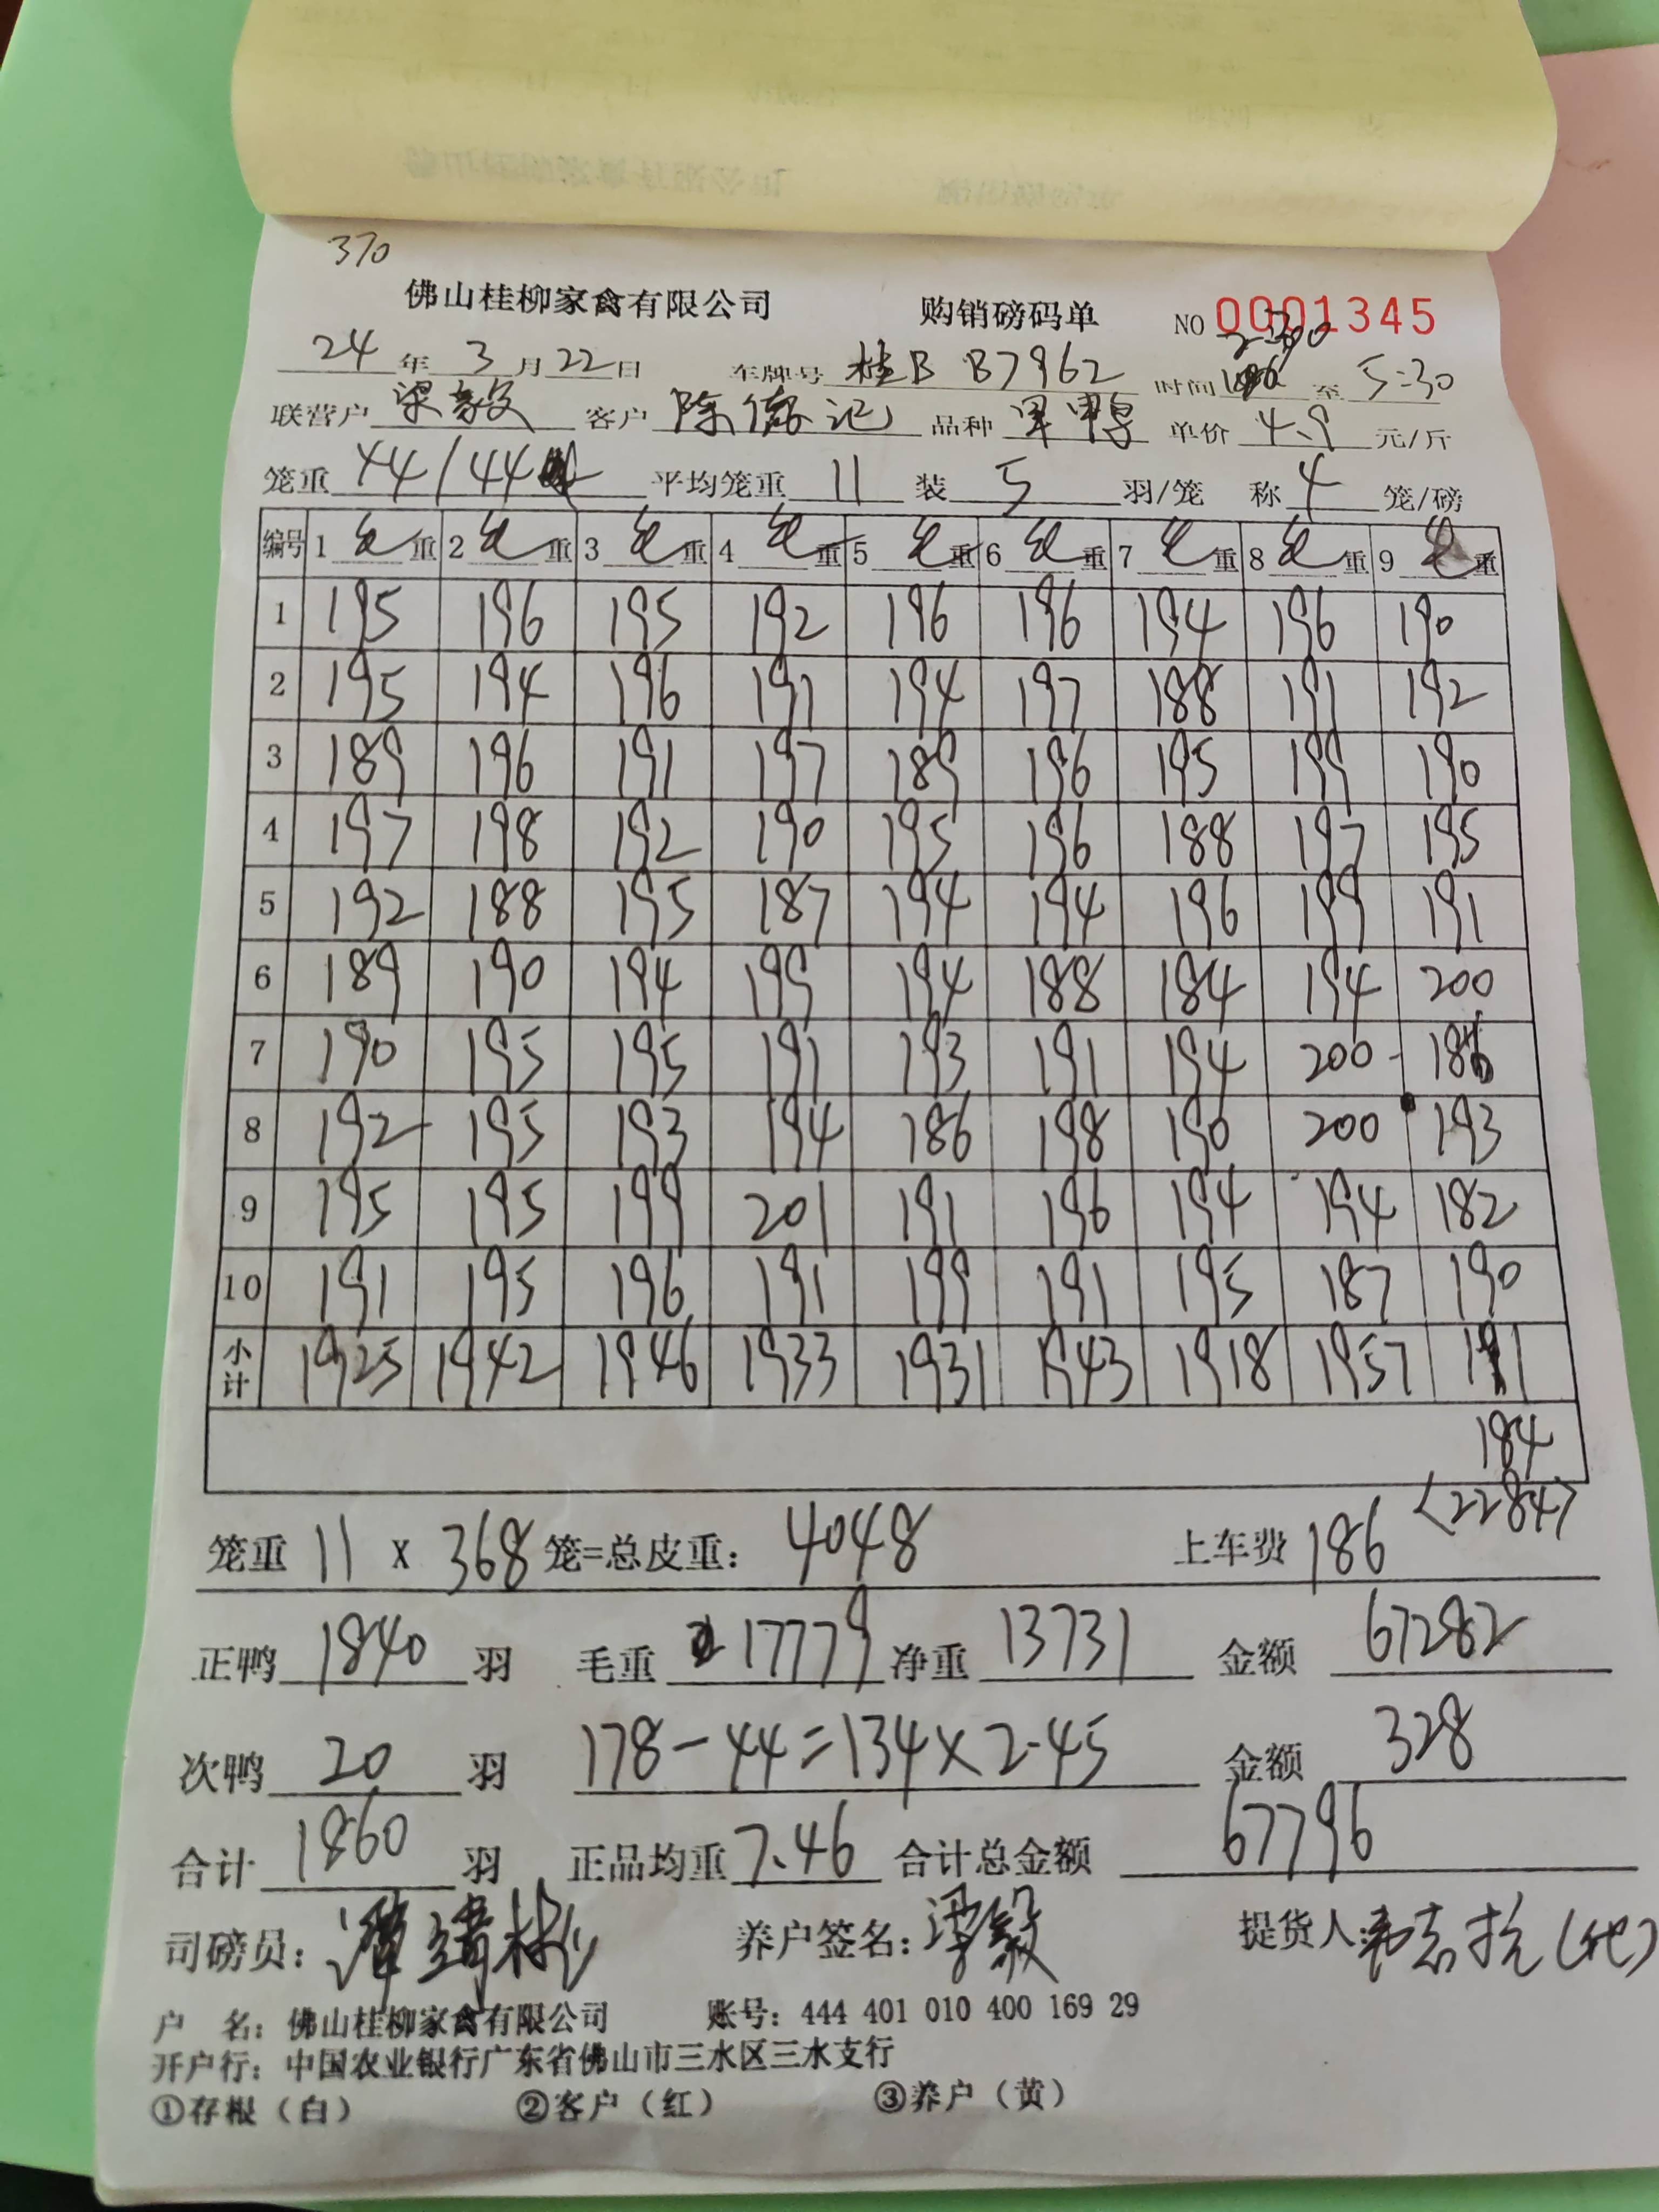 370
佛山桂柳家禽有限公司 购销磅码单 NO 0001345
24 年 3 月 22 日 车牌号 桂B B7962 时间 2:30 至 5:30
联营户 梁毅 客户 陈德记 品种 单价 4.9 元/斤
笼重 44/44 平均笼重 11 装 5 羽/笼 称 4 笼/磅
编号 1 毛重 2 毛重 3 毛重 4 毛重 5 毛重 6 毛重 7 毛重 8 毛重 9 毛重
1 195 196 195 192 196 196 194 196 190
2 195 194 196 191 194 197 188 191 192
3 189 196 191 197 189 196 195 199 190
4 197 198 192 190 195 196 188 197 195
5 192 188 195 187 194 194 196 199 191
6 189 190 194 199 194 188 184 194 200
7 190 195 195 191 193 191 194 200 186
8 192 195 193 194 186 198 190 200 193
9 195 195 199 201 191 196 194 194 182
10 191 195 196 191 199 191 195 187 190
小计 1925 1942 1946 1933 1931 1943 1918 1957 191
184
<2284>
笼重 11 x 368 笼=总皮重: 4048 上车费 186
正鸭 1840 羽 毛重 17779 净重 13731 金额 67282
次鸭 20 羽 178-44=134×2.45 金额 328
合计 1860 羽 正品均重 7.46 合计总金额 67796
司磅员: 养户签名: 梁毅 提货人: (代)
户 名: 佛山桂柳家禽有限公司 账号: 444 401 010 400 169 29
开户行: 中国农业银行广东省佛山市三水区三水支行
①存根（白） ②客户（红） ③养户（黄）